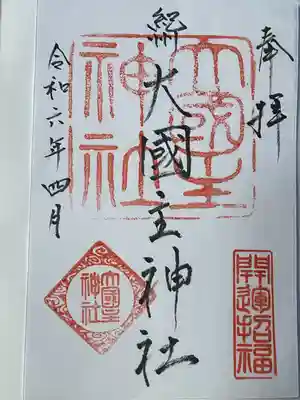 奉拝
総大國主神社
令和六年四月
大國主神社
大國主
神社
開運招福